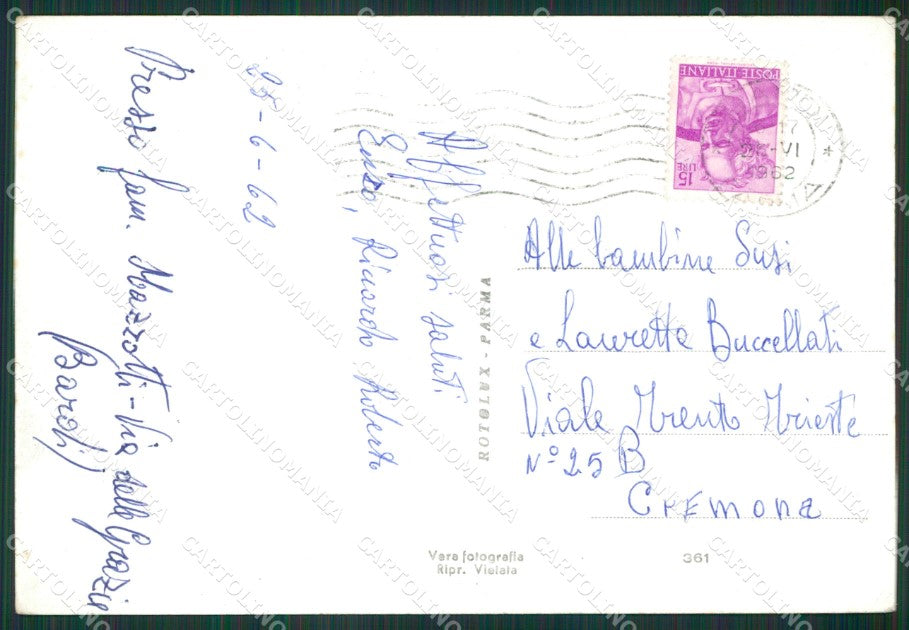 Presso fam. Mazzotti - Via delle Grazie
Bardi)
25-6-62
Affettuosi saluti
Enzo, Riccardo Roberto
ROTOLUX - PARMA
POSTE ITALIANE
15 LIRE
VI
1962
Alle bambine Susi
e Lauretta Buccellati
Viale Trento Trieste
N° 25 B
Cremona
Vera fotografia
Ripr. Vietata
361
CARTOLINOMANIA